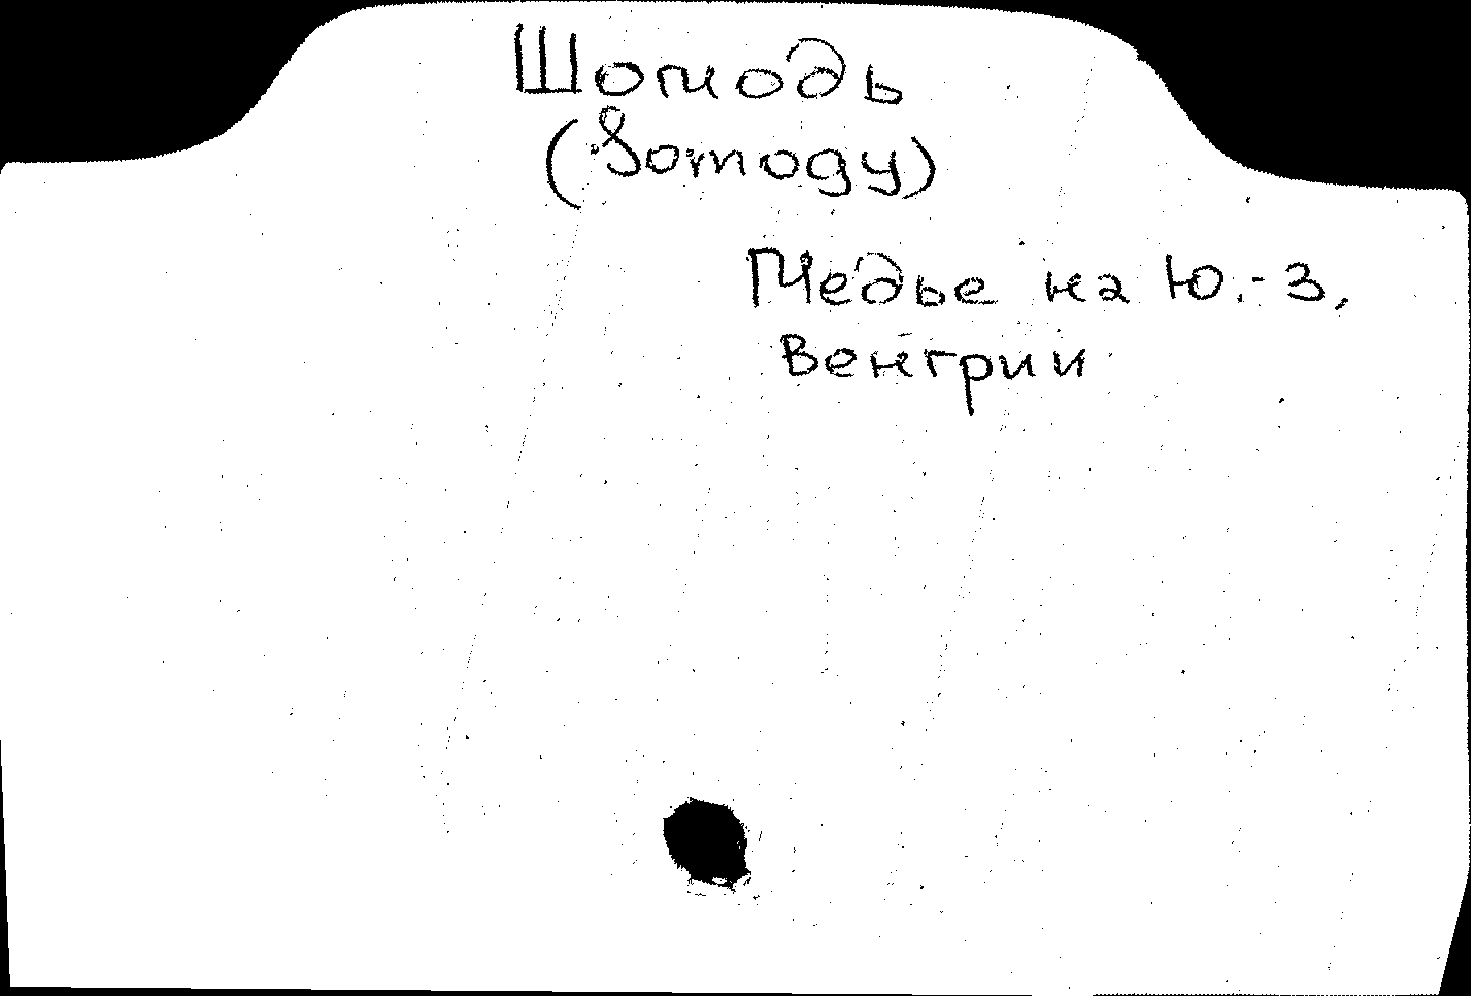 Шомодь
(Somogy)
Медье на Ю.-З,
Венгрии